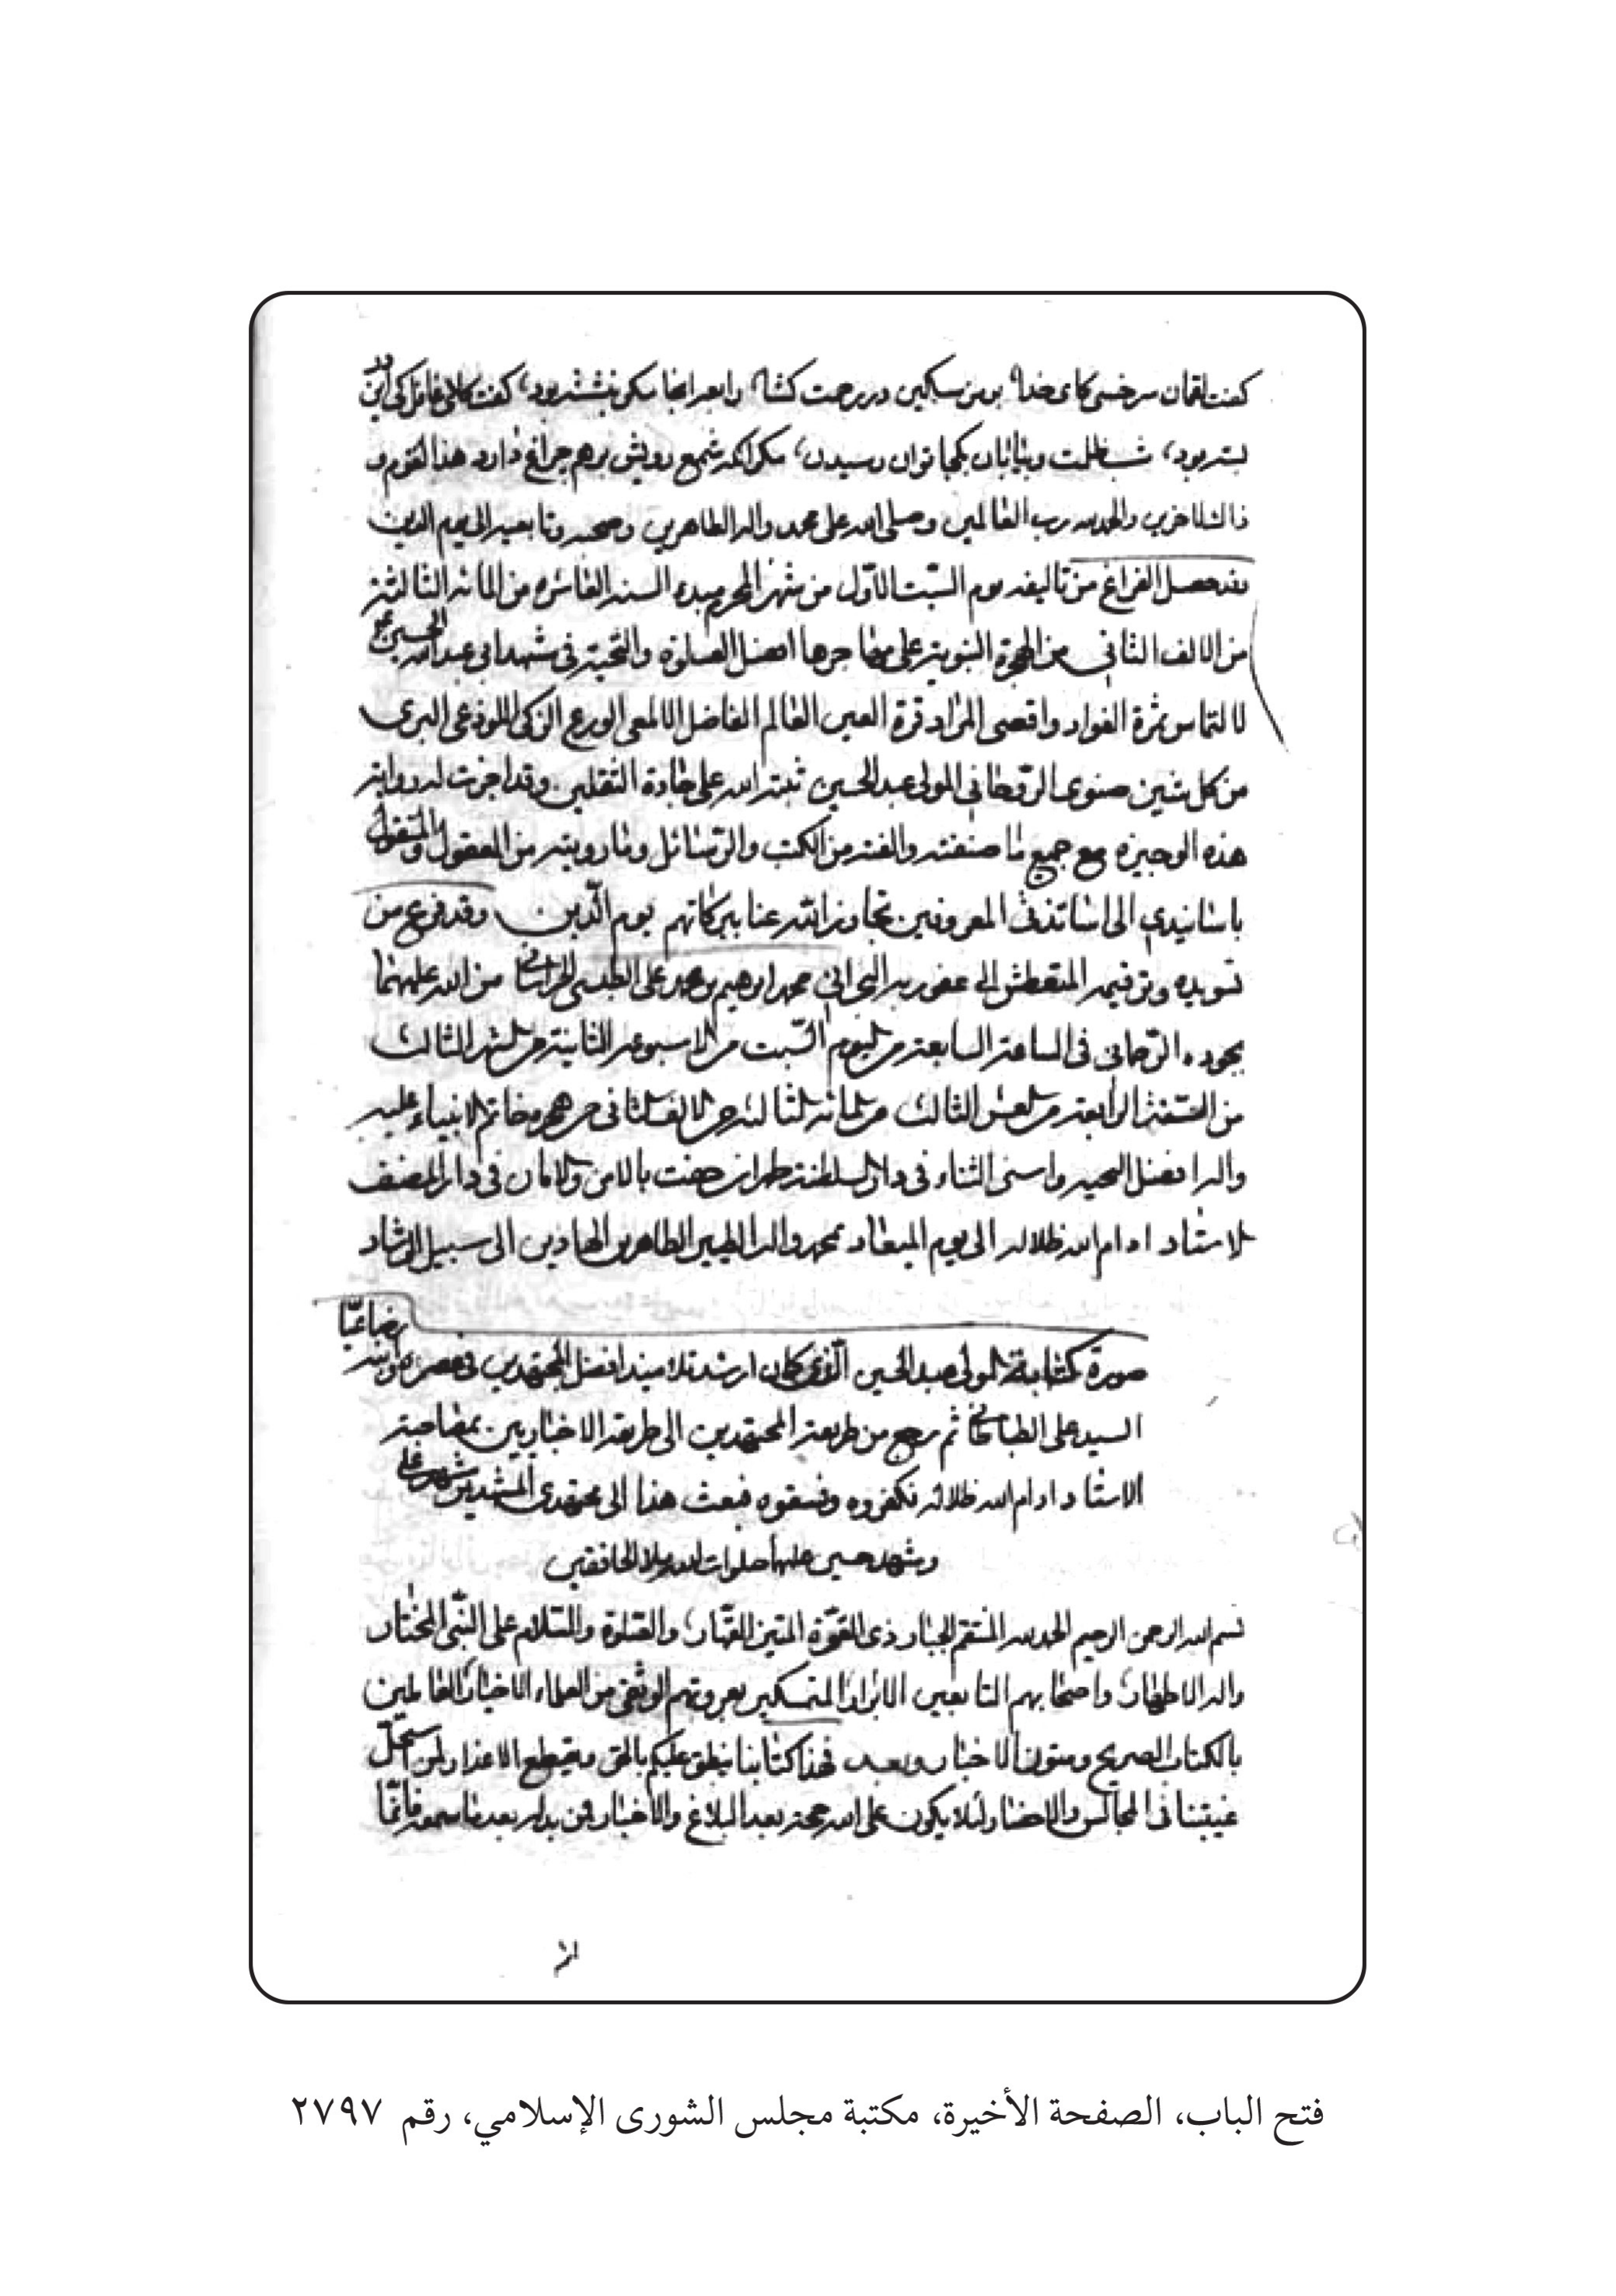 كفت لقمان سرخسى كاى خدا
بسته بود، شب ظلمت وبيابان بكجا توان رسيدن، مكر انكه شمع رويش برهم چراغ دارد هذا لقوم و
ذاك لاخرين والحمد لله رب العالمين وصلى الله على محمد واله الطاهرين وصحبه وتابعيه الى يوم الدين
قد حصل الفراغ من تاليفه يوم السبت الاول من شهر المحرم مبدء السنة العاشره من المائة الثالثة
من الالف الثانى من الهجرة النبوية على مهاجرها افضل الصلوة والتحية فى مشهد ابى عبد الله الحسين ع
لالتماس ثمرة الفواد واقصى المراد قرة العين العالم الفاضل الالمعى الورع الزكى اللوذعى البرى
من كل شين صنوى الروحانى المولى عبد الحسين ثبته الله على جادة الثقلين وقد اجزت له رواية
هذه الوجيزه مع جميع ما صنفته والفته من الكتب والرسائل وما رويته من المعقول والمنقول
باسانيدي الى اساتذتى المعروفين تجاوز الله عنا ببركاتهم يوم الدين وقد فرغ من
تسويده وترقيمه المتعطش الى عفو ربه محمد ابرهيم بن محمد على الطبسى الخراسانى من الله عليهما
بجوده الرحمانى فى الساعة السابعة من اليوم السبت من الاسبوعه الثانية من الشهر الثالث
من السنة الرابعة من العشر الثالث من المائة الثالثة من الالف الثانى من هجرة خاتم الانبياء عليه
واله افضل التحيه واسنى الثناء فى دار السلطنة طهران حفت بالامن والامان فى دار المصنف
الاستاد ادام الله ظلاله الى يوم الميعاد بمحمد واله الطيبين الطاهرين الهادين الى سبيل الرشاد
صورة كتابة المولى عبد الحسين الذى كان ارشد تلاميذ افضل المجتهدين فى عصره
السيد على الطباطبائى ثم رجع من طريقة المجتهدين الى طريقة الاخباريين بمصاحبة
الاستاد ادام الله ظلاله فكفروه وفسقوه فبعث هذا الى مجتهدى المشهدين مشهد على
ومشهد حسين عليهما صلوات الله ملا الخافقين
بسم الله الرحمن الرحيم الحمد لله المنتقم الجبار ذى القوة المتين القهار، والصلوة والسلام على النبى المختار
واله الاطهار، واصحابهم التابعين الابرار المتمسكين بعروتهم الوثقى من العلماء الاخيار العاملين
بالكتاب الصريح ومتون الاخبار وبعد فهذا كتابنا ينطق عليكم بالحق ويقطع الاعذار لمن استحل
غيبتنا فى المجالس والاحضار لئلا يكون على الله حجة بعد البلاغ والاخبار فمن بدله بعد ما سمعه فانما
فتح الباب، الصفحة الأخيرة، مكتبة مجلس الشورى الإسلامي، رقم ٢٧٩٧